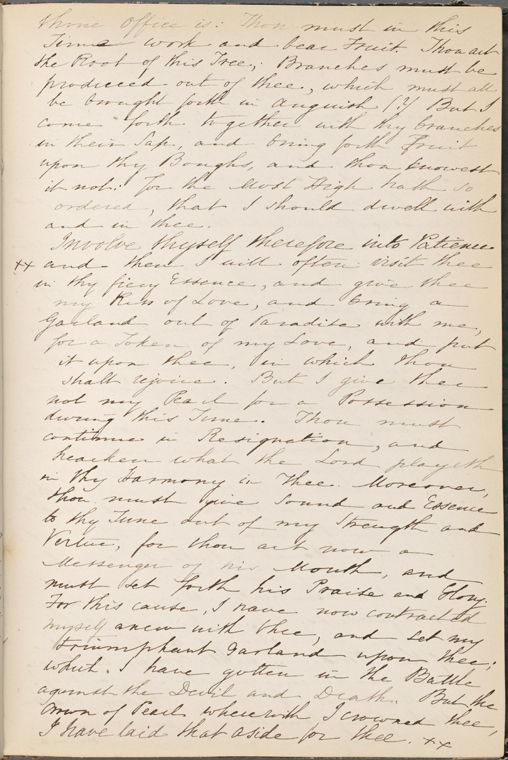 thine Office is: Thou must in this
Time work and bear Fruit. Thou art
the Root of this Tree; Branches must be
produced out of thee, which must all
be brought forth in Anguish. But I
come forth together with thy branches
in their Sap, and bring forth Fruit
upon thy Boughs, and thou knowest
it not: for the Most High hath so
ordered, that I should dwell with
and in thee.
Involve thyself therefore into Patience
xx and then I will often visit thee
in thy fiery Essence, and give thee
my Kiss of Love, and bring a
Garland out of Paradise with me,
for a Token of my Love, and put
it upon thee, in which thou
shalt rejoice. But I give thee
not my Pearl for a Possession
during this Time. Thou must
continue in Resignation, and
hearken what the Lord playeth
in thy Harmony in Thee. Moreover,
thou must give Sound and Essence
to thy Tune out of my Strength and
Virtue, for thou art now a
Messenger of his Mouth, and
must set forth his Praise and Glory.
For this cause, I have now contracted
myself anew with thee, and set my
triumphant Garland upon thee;
which I have gotten in the Battle
against the Devil and Death. But the
Crown of Pearl wherewith I crowned thee,
I have laid that aside for thee. xx